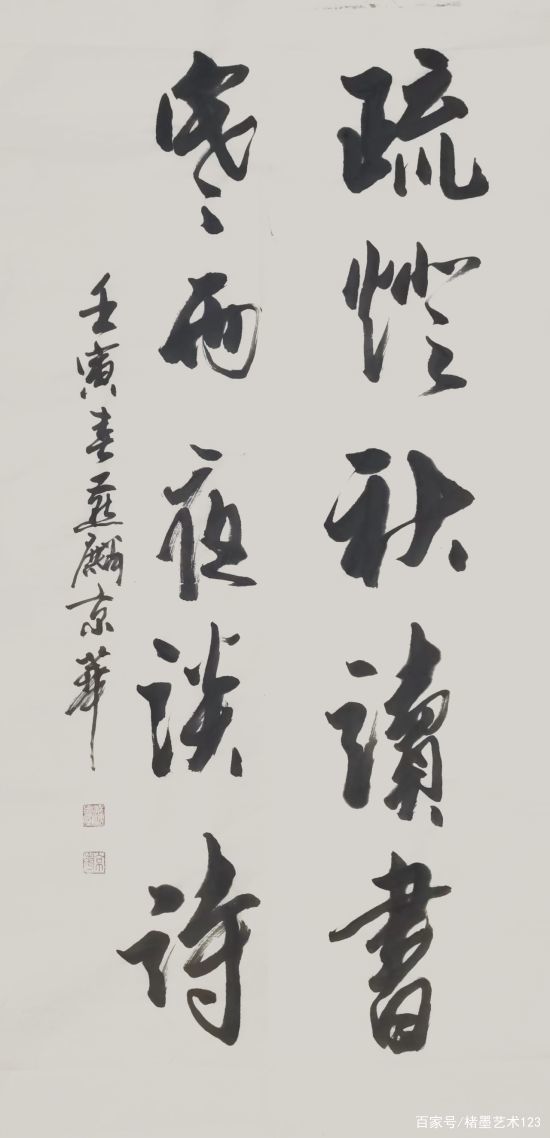 疏燈秋讀書
寒雨夜談詩
壬寅春燕麟京華
百家号/楮墨艺术123